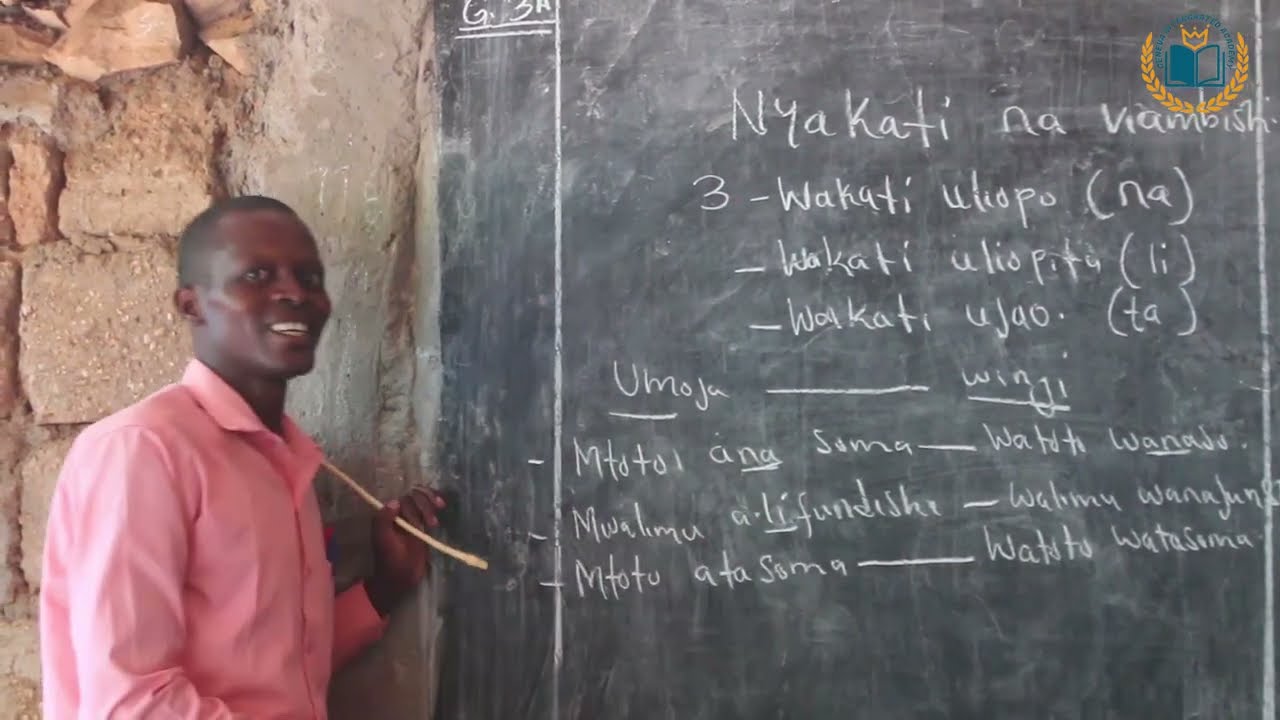 G. 3A
Nyakati na viambishi.
3 - Wakati uliopo (na)
- Wakati uliopita (li)
- Wakati ujao. (ta)
Umoja — wingi
- Mtotoi ana soma — Watoto wanaso.
- Mwalimu a.lifundishe — walimu wanafun
- Mtoto atasoma — Watoto watasoma.
INTEGRATED ACADEMY